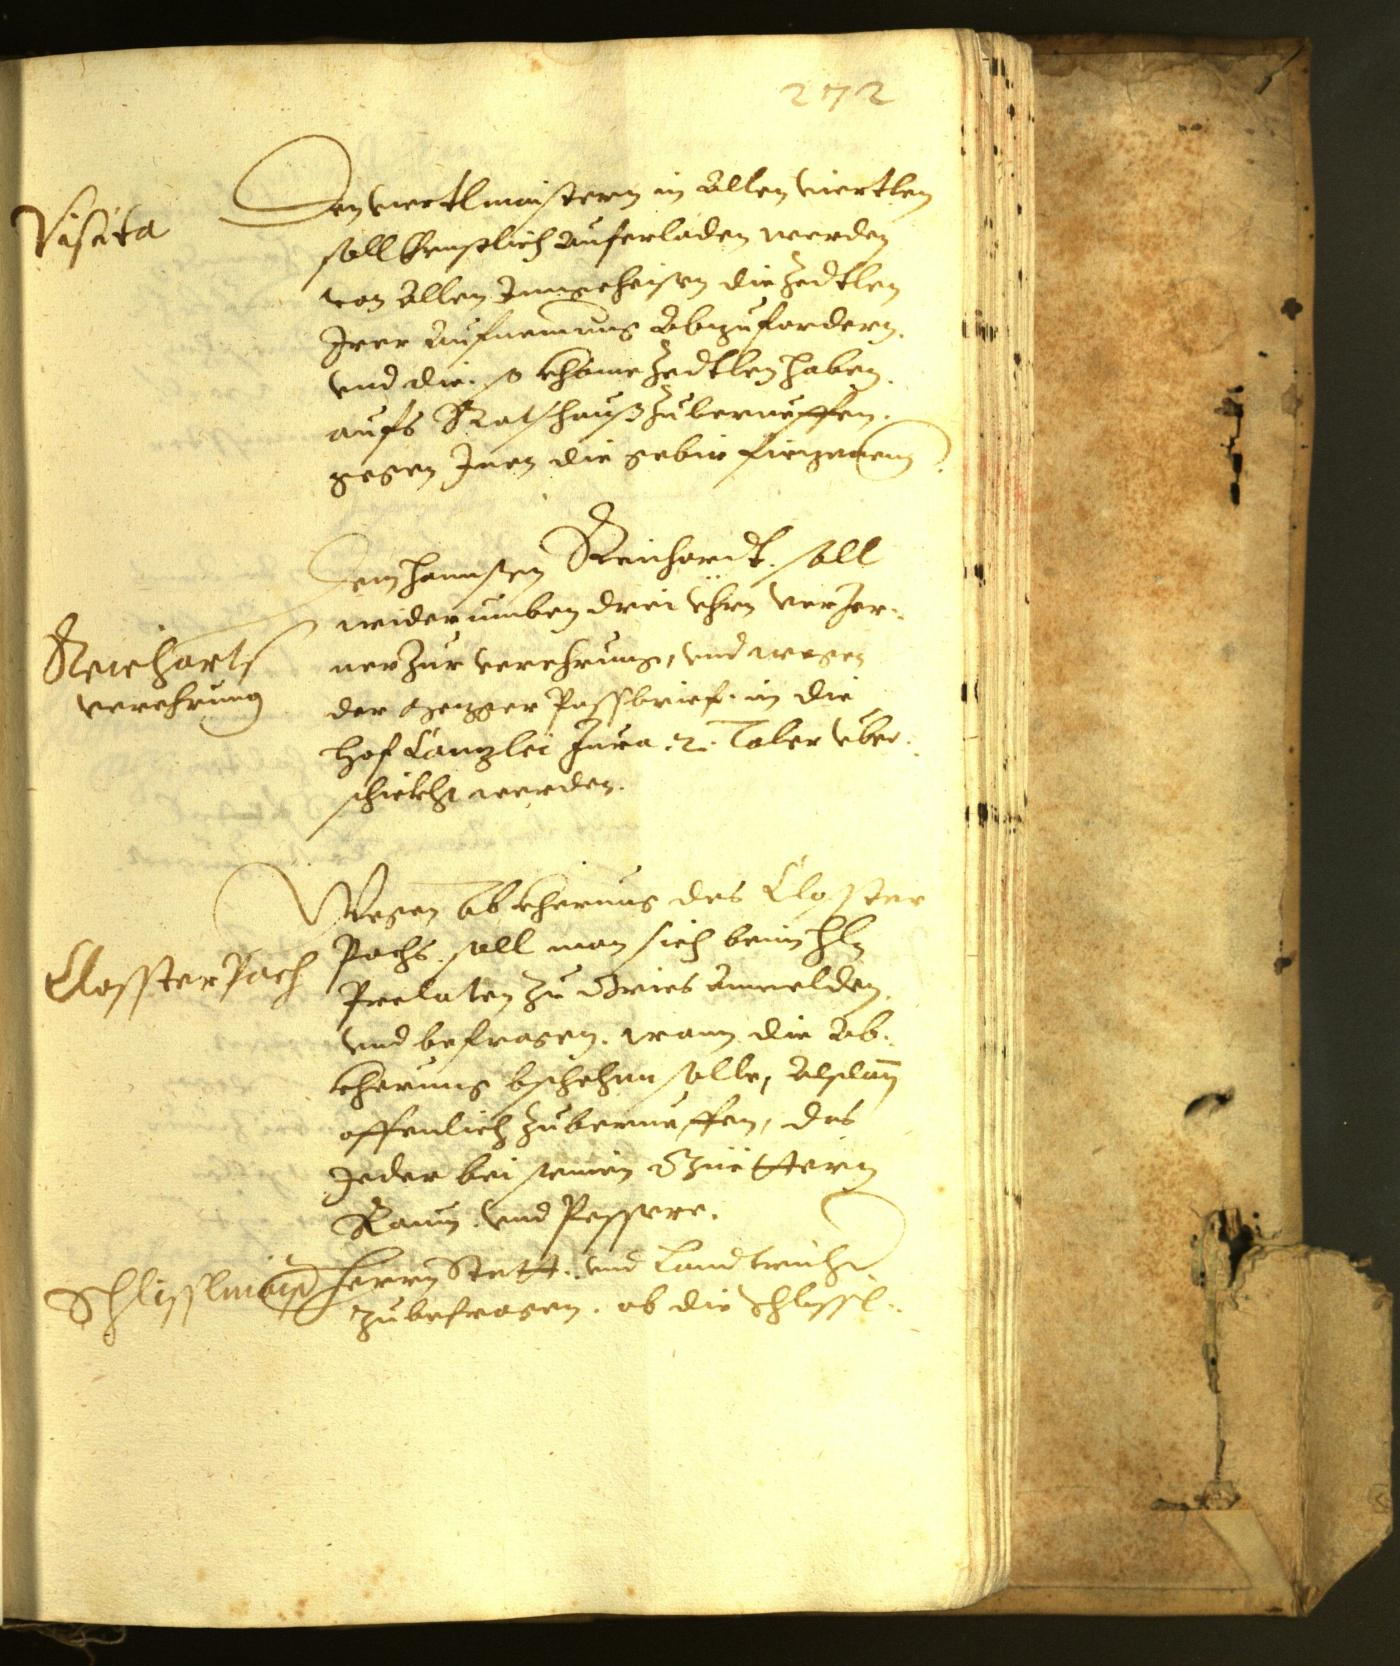 272
Visita
Den viertlmaistern in Allen viertlen
soll Ernstlich Auferladen werden
von Allen Inngeheisen die Zedtlen
Irer Aufnemung Abzufordern,
vnd die, so khaine Zedtlen haben
aufs Rathauß Zuberueffen,
gegen Inen die gebir firzunemen
Reicharts
verehrung
Dem Hannsen Reichardt soll
widerumben drei Yhrn
zur verehrung, vnd wegen
der Passbrief in die
hof Canzlei Jura 2 Taler vber-
schickht werden.
Closster Pach
Wegen Abkherung des Closter
Pachs, soll man sich beim Hern
Prelaten zu Gries Anmelden,
vnd befragen, wann die Ab-
kherung bschehen solle, Alsdann
offenlich Zuberueffen, das
Jeder bei seinen Güettern
Raum vnd Pessere.
Schlisslmaid
Herrn Statt vnd Landtrichter
zubefragen, ob die Schlissl-